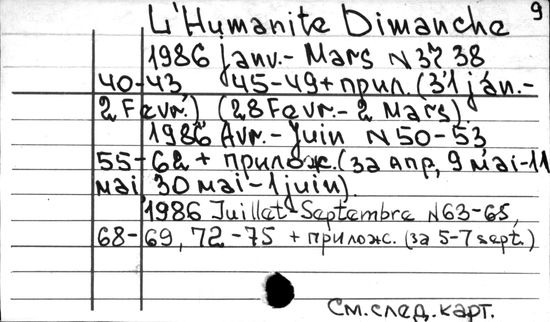 9
L'Humanite Dimanche
1986 janv.- Mars N 37 38
40-43 45-49 + прил. (31 ján.-
2 Fevr.) (28 Fevr.- 2 Mars)
1986 Avr.- Juin N 50-53
55-62 + прилож. (за апр, 9 mai-11
mai 30 mai-1 juin)
1986 Juillet-Septembre N 63-65,
68-69, 72-75 + прилож. (за 5-7 sept.)
См. след. карт.